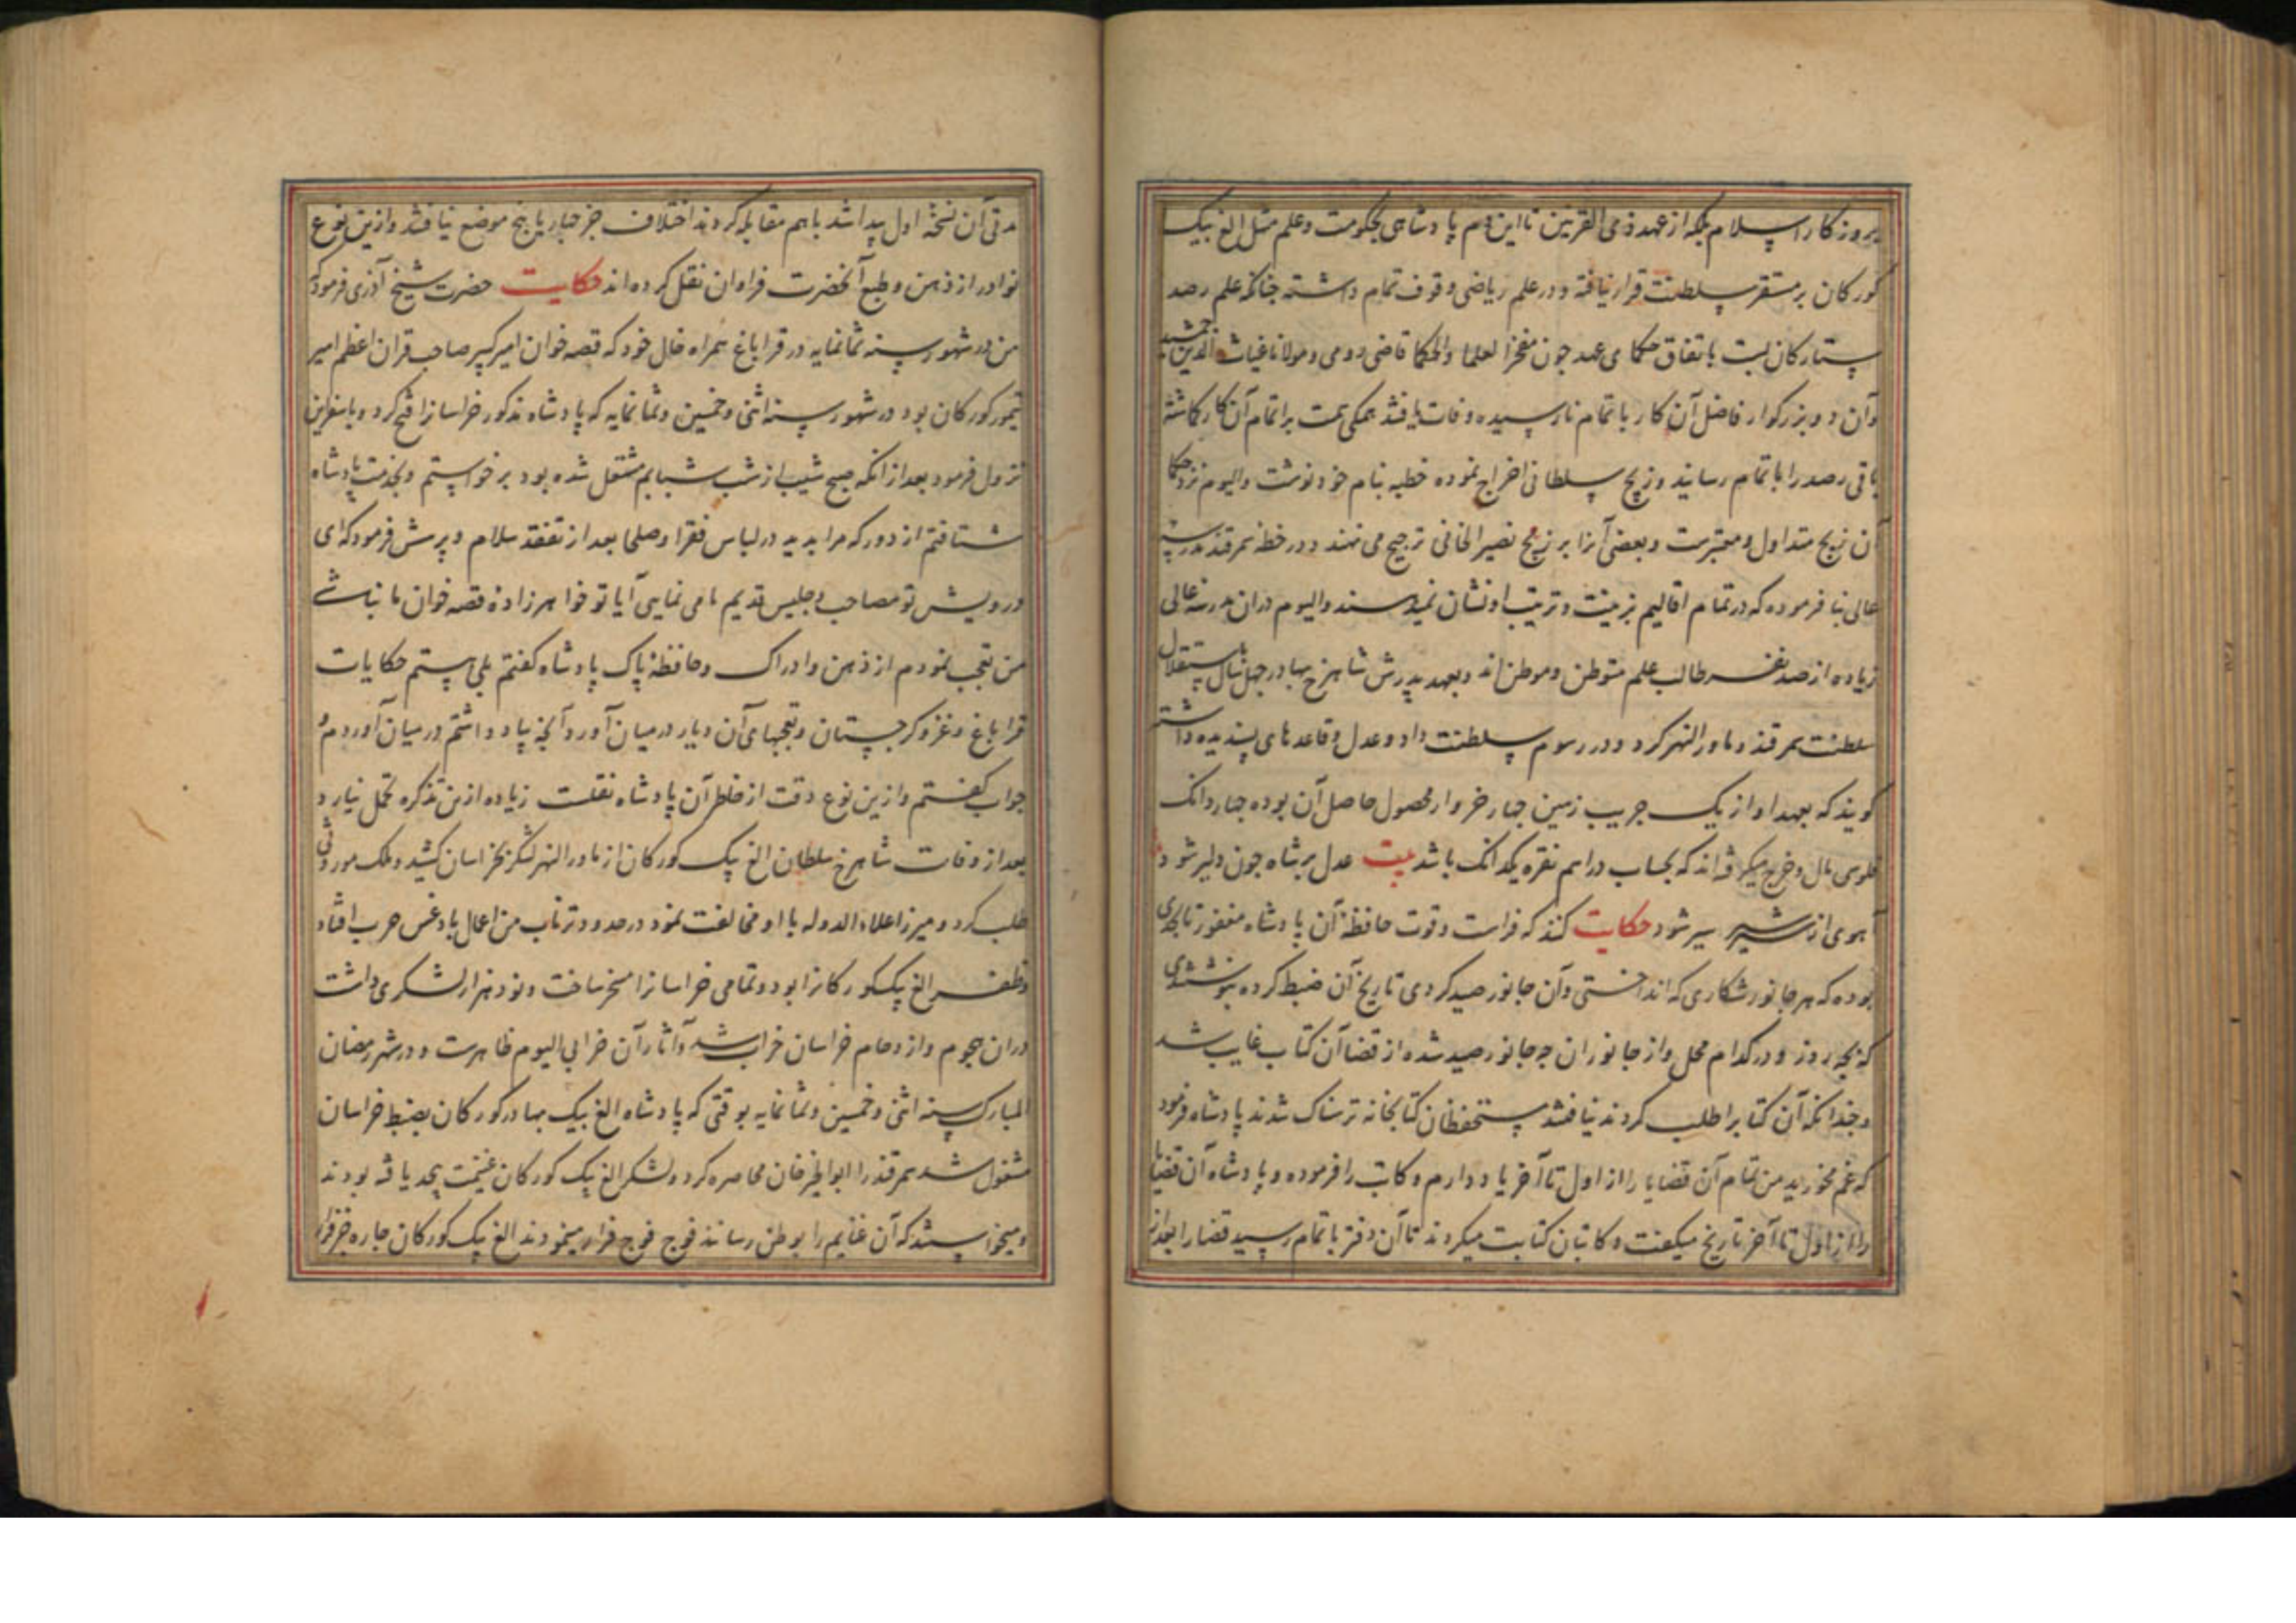 بروزکار اسلام بلکه از عهد ذی القرنین تا این دم پادشاهی بحکومت و علم مثل الغ بیک
کورکان بر مستقر سلطنت قرار نیافته و در علم ریاضی وقوف تمام داشته چنانکه علم رصد
ستارکان بست باتفاق حکمای عهد چون مفخر العلما والحکما قاضی رومی و مولانا غیاث الدین جمشید
و آن دو بزرکوار فاضل آن کار باتمام نارسیده وفات یافتند همکی همت بر اتمام آن کار کماشته
باقی رصد را باتمام رسانید و زیج سلطانی اخراج نموده خطبه بنام خود نوشت و الیوم نزد حکما
آن زیج متداول و معتبرست و بعضی آنرا بر زیج نصیر الخانی ترجیح می نهند و در خطه سمرقند مدرسه
عالی بنا فرموده که در تمام اقالیم بزینت و ترتیب او نشان نمیدهند و الیوم دران مدرسه عالی
زیاده از صد نفر طالب علم متوطن و موطن اند و بعهد پدرش شاهرخ بهادر چهل سال باستقلال
سلطنت سمرقند و ماورالنهر کرد و در رسوم سلطنت داد و عدل و قاعدهای پسندیده داشته
کویند که بعهد او از یک جریب زمین چهار خروار محصول حاصل آن بوده چهار دانک
فلوس مال و خرج میکرفته اند که بحساب دراهم نقره یکدانک باشد بیت عدل بر شاه چون دلیر شود
آهوی از شیر سیر شود حکایت کنند که فراست و قوت حافظه آن پادشاه مغفور تا بحدی
بوده که هر جانور شکاری که انداختی و آن جانور صید کردی تاریخ آن ضبط کرده بنوشتندی
که بچه روز و در کدام محل و از جانوران چه جانور صید شده از قضا آن کتاب غایب شد
و چندانکه آن کتابرا طلب کردند نیافتند مستحفظان کتابخانه ترسناک شدند پادشاه فرمود
که غم مخورید من تمام آن قضایا را از اول تا آخر یاد دارم و کاتب را فرموده و پادشاه آن قضایا
را از اول تا آخر تاریخ میکفت و کاتبان کتابت میکردند تا آن دفتر باتمام رسید قضارا بعد از
مدتی آن نسخه اول پیدا شد باهم مقابله کردند اختلاف جز چهار یا پنج موضع نیافتند و ازین نوع
نوادر از ذهن و طبع آنحضرت فراوان نقل کرده اند حکایت حضرت شیخ آذری فرموده که
من در شهور سنه ثمانمایه در قراباغ همراه خال خود که قصه خوان امیر کبیر صاحب قران اعظم امیر
تیمور کورکان بود در شهور سنه اثنی و خمسین و ثمانمایه که پادشاه مذکور خراسانرا فتح کرد و باسفراین
نزول فرمود بعد از انکه صبح شیب از شب شبابم مشتعل شده بود برخواستم و بخدمت پادشاه
شتافتم از دور که مرا بدید در لباس فقرا و صلحا بعد از تفقد سلام و پرسش فرمود که ای
درویش تو مصاحب و جلیس قدیم ما می نمایی آیا تو خواهرزاده قصه خوان ما نباشی
من تعجب نمودم از ذهن و ادراک و حافظه پاک پادشاه کفتم بلی هستم حکایات
قراباغ و غزو کرجستان و تعجبهای آن دیار درمیان آورد آنچه بیاد داشتم درمیان آوردم و
جواب کفتم و ازین نوع دقت از خاطر آن پادشاه نقلست زیاده ازین تذکره تحمل نیارد
بعد از وفات شاهرخ سلطان الغ بیک کورکان از ماورالنهر لشکر بخراسان کشید و ملک موروثی
طلب کرد و میرزا علاء الدوله با او مخالفت نمود در حدود ترناب من اعمال بادغیس حرب افتاد
و ظفر الغ بیک کورکانرا بود و تمامی خراسانرا مسخر ساخت و نود هزار لشکری داشت
دران هجوم و ازدحام خراسان خراب شد و آثار آن خرابی الیوم ظاهرست و در شهر رمضان
المبارک سنه اثنی و خمسین و ثمانمایه بوقتی که پادشاه الغ بیک بهادر کورکان بضبط خراسان
مشغول شد سمرقند را ابوالخیر خان محاصره کرد و لشکر الغ بیک کورکان غنیمت بیحد یافته بودند
و میخواستند که آن غنایم را بوطن رسانند فوج فوج فرار مینمودند الغ بیک کورکان چاره جز فرار